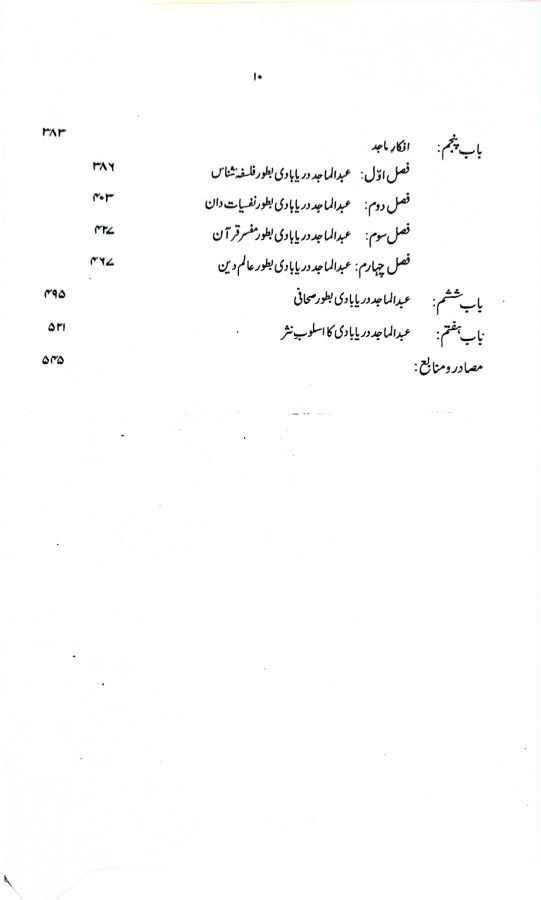 ۱۰
باب پنجم: افکارِ ماجد ۳۸۳
فصل اوّل: عبدالماجد دریابادی بطور فلسفہ شناس ۳۸۶
فصل دوم: عبدالماجد دریابادی بطور نفسیات دان ۴۰۳
فصل سوم: عبدالماجد دریابادی بطور مفسر قرآن ۴۲۷
فصل چہارم: عبدالماجد دریابادی بطور عالم دین ۴۶۷
باب ششم: عبدالماجد دریابادی بطور صحافی ۴۹۵
باب ہفتم: عبدالماجد دریابادی کا اسلوبِ نثر ۵۲۱
مصادر و منابع: ۵۴۵